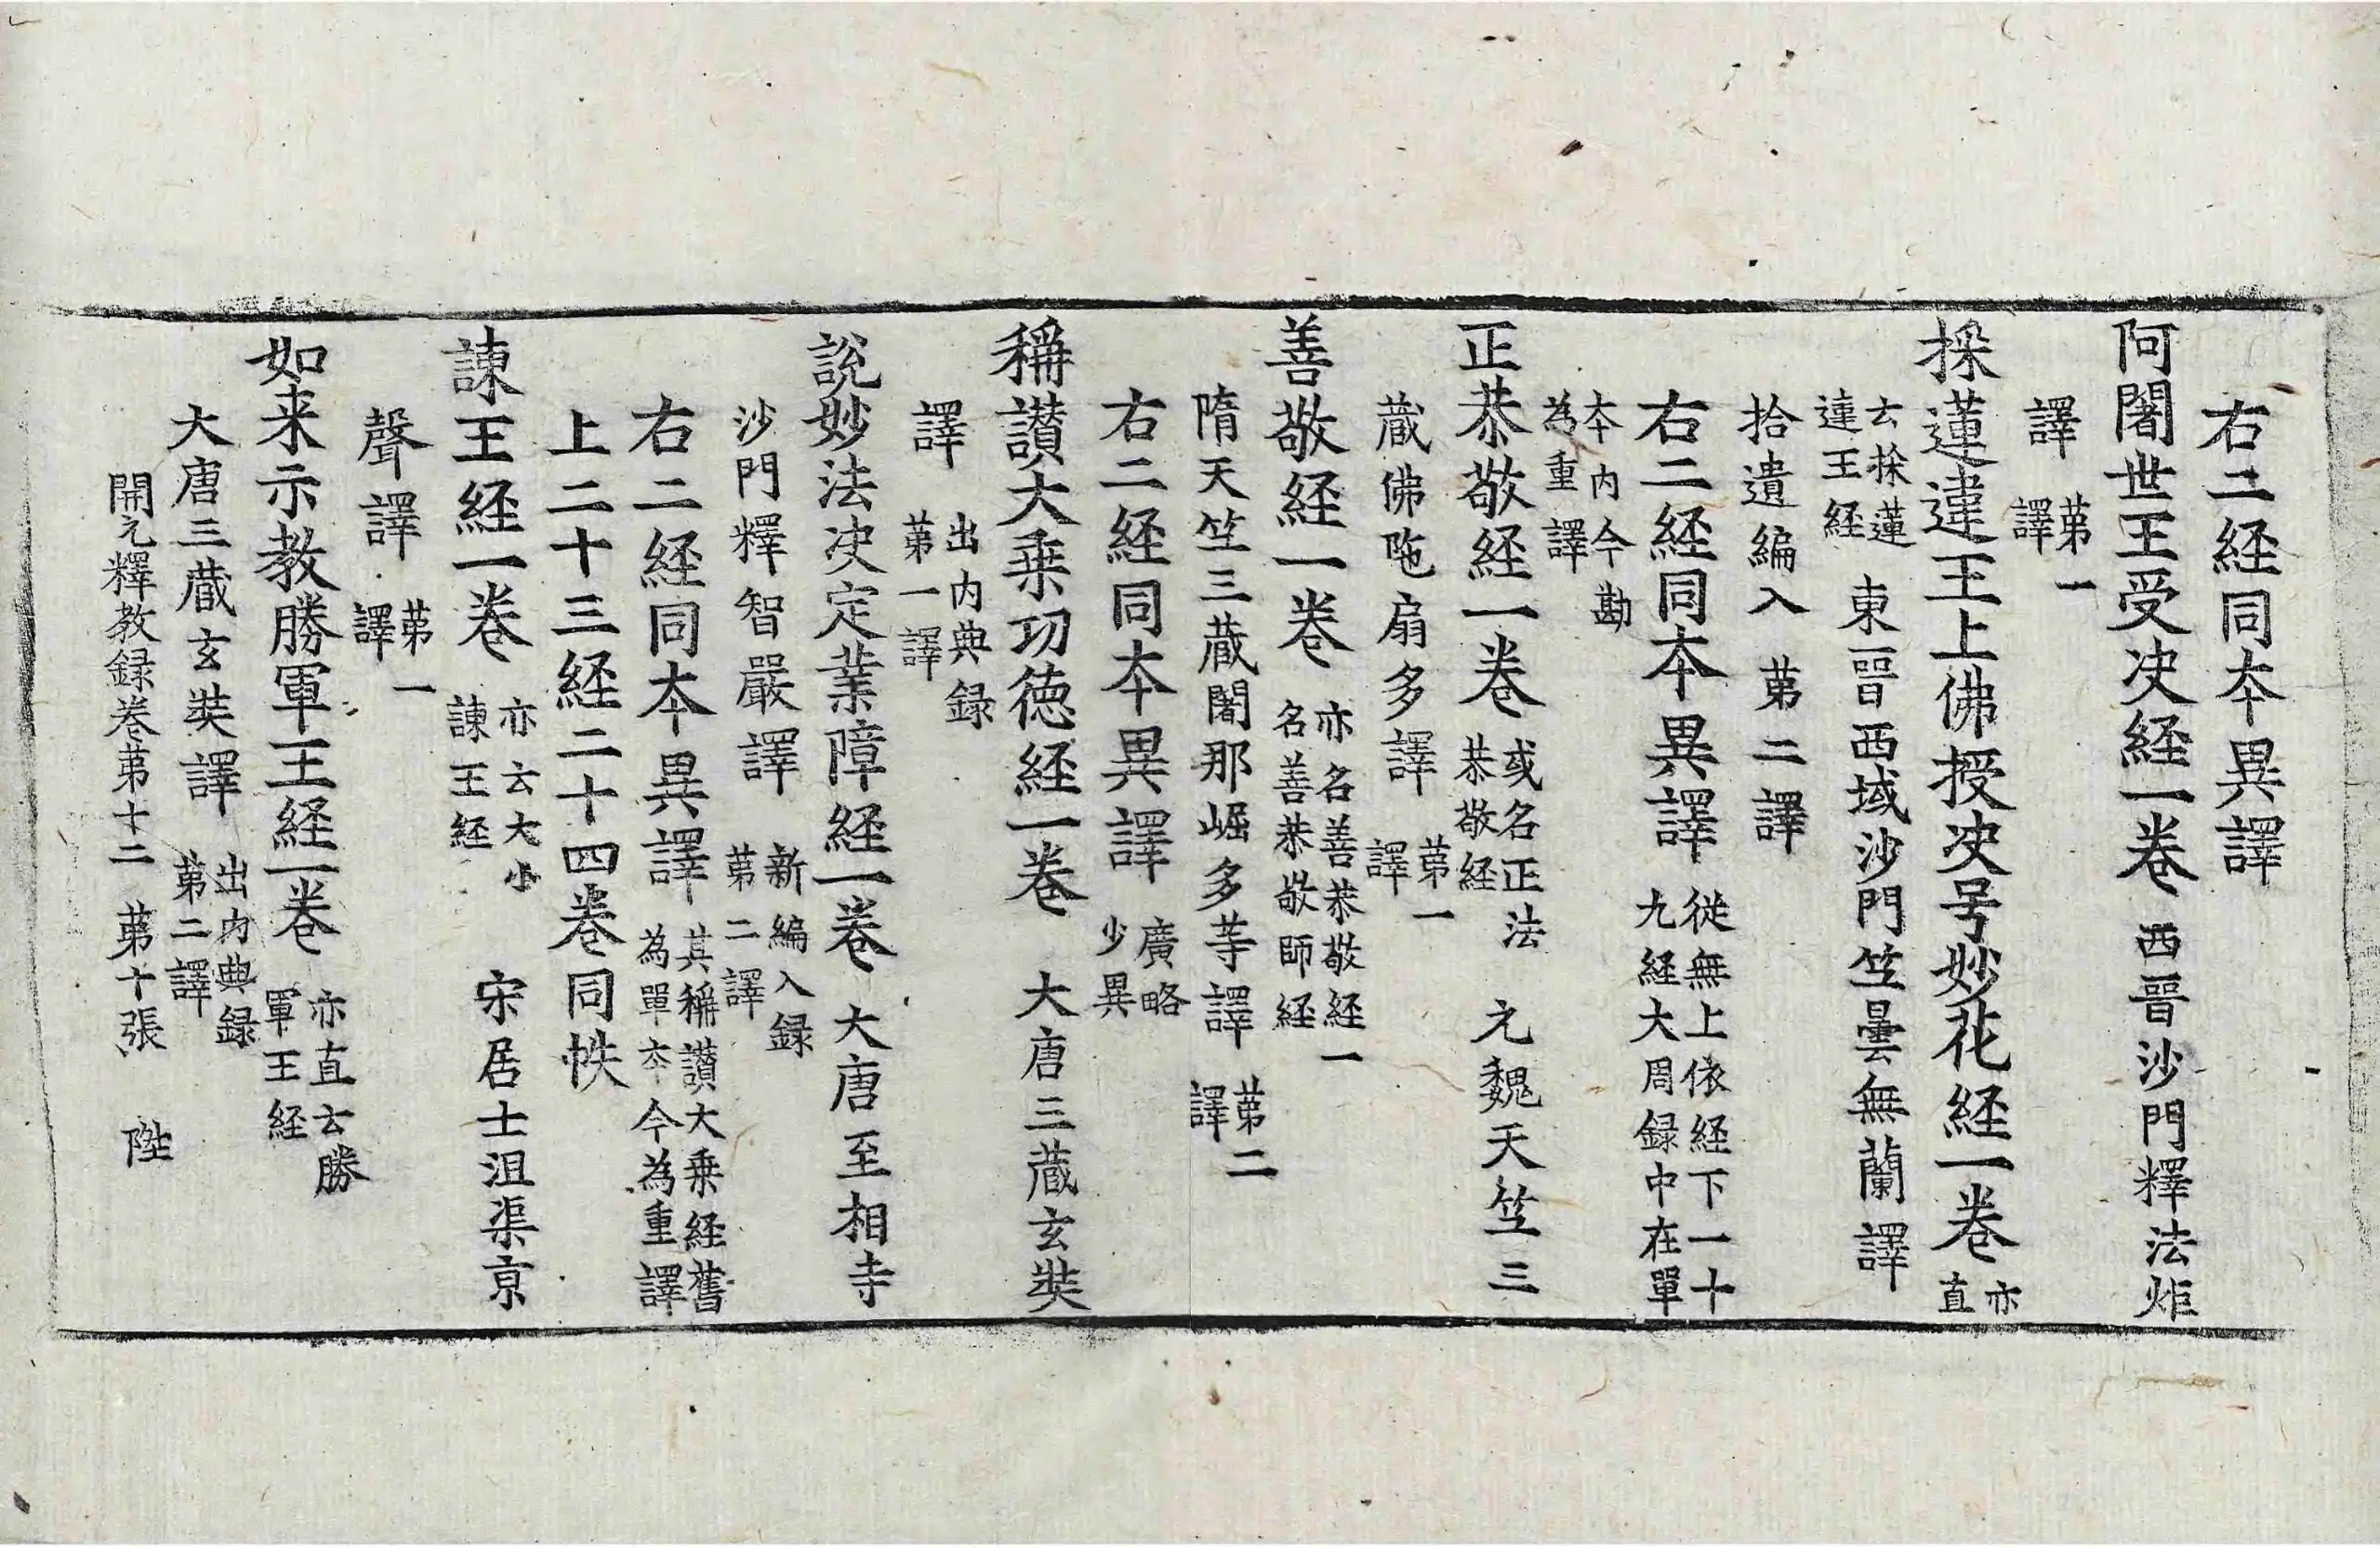 右二経同夲異譯
阿闍世王受决経一卷 西晉沙門釋法炬
譯 苐一譯
採蓮違王上佛授决号妙花経一卷 亦直
云採蓮違王経 東晉西域沙門竺曇無蘭譯
拾遺編入 苐二譯
右二経同夲異譯 從無上依経下一十九経大周録中在單
夲内今勘為重譯
正恭敬経一卷 或名正法恭敬経 元魏天竺三
蔵佛陁扇多譯 苐一譯
善敬経一卷 亦名善恭敬経一名善恭敬師経
隋天竺三蔵闍那崛多等譯 苐二譯
右二経同夲異譯 廣略少異
稱讃大乗功徳経一卷 大唐三蔵玄奘
譯 出内典録苐一譯
說妙法决定業障経一卷 大唐至相寺
沙門釋智嚴譯 新編入録苐二譯
右二経同夲異譯 其稱讃大乗経舊為單夲今為重譯
上二十三経二十四卷同帙
諫王経一卷 亦云大小諫王経 宋居士沮渠京
聲譯 苐一譯
如来示教勝軍王経一卷 亦直云勝軍王経
大唐三蔵玄奘譯 出内典録苐二譯
開元釋教録卷苐十二 苐十張 陞